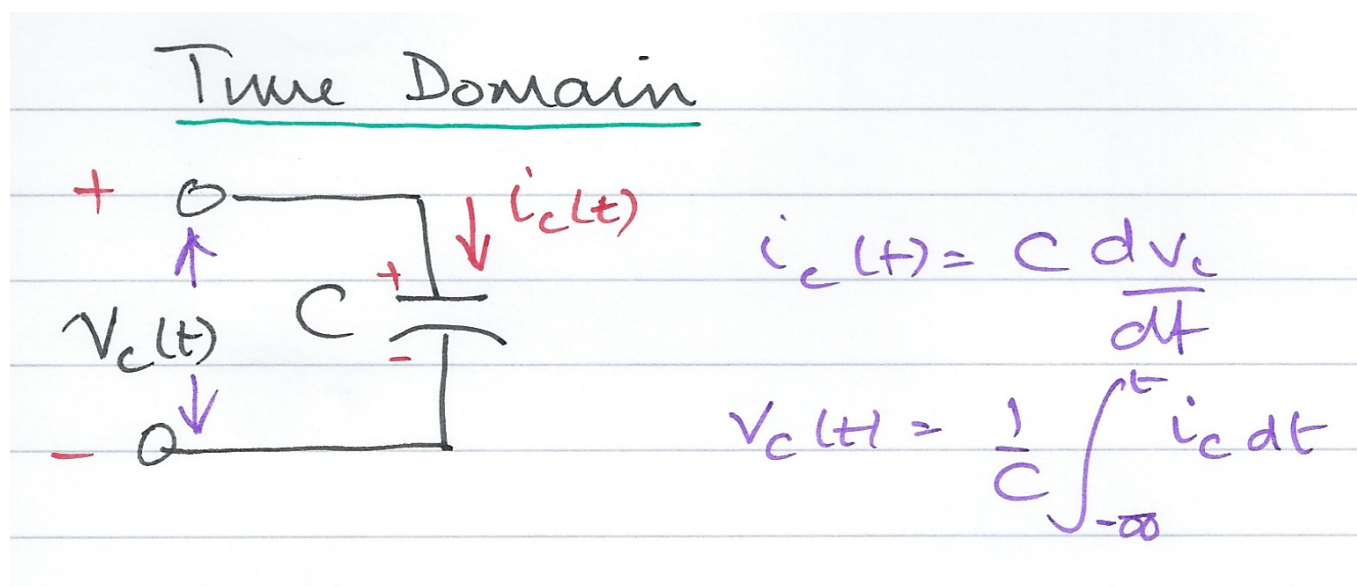 Time Domain
+
i_c(t)
+
C
V_c(t)
-
-
i_c(t) = C dv_c/dt
v_c(t) = 1/C ∫_{-∞}^{t} i_c dt